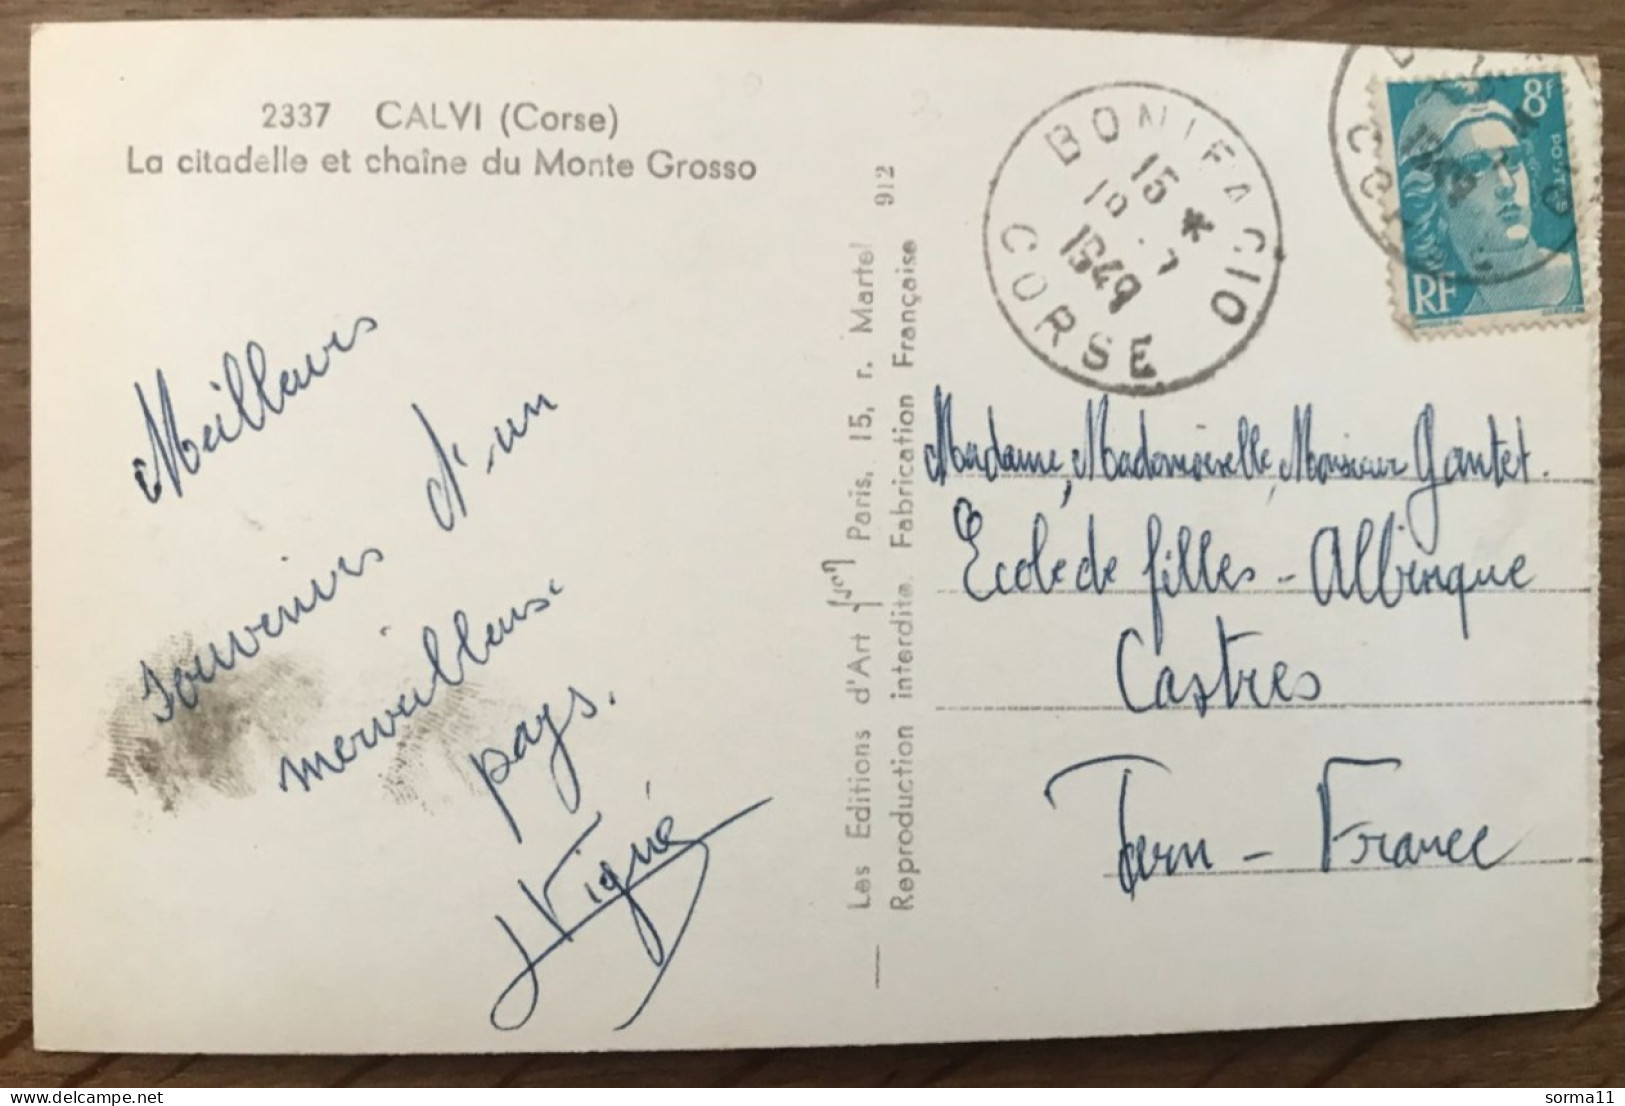 2337 CALVI (Corse)
La citadelle et chaîne du Monte Grosso
Meilleurs
souvenirs d'un
merveilleux
pays.
J Vigné
Les Editions d'Art Paris, 15, r. Martel 912
Reproduction interdite. Fabrication Française
BONIFACIO
15 *
1949
CORSE
8f
POSTES
RF
Madame, Mademoiselle, Monsieur Gantet.
Ecole de filles - Albinque
Castres
Tarn - France
delcampe.net
sorma11